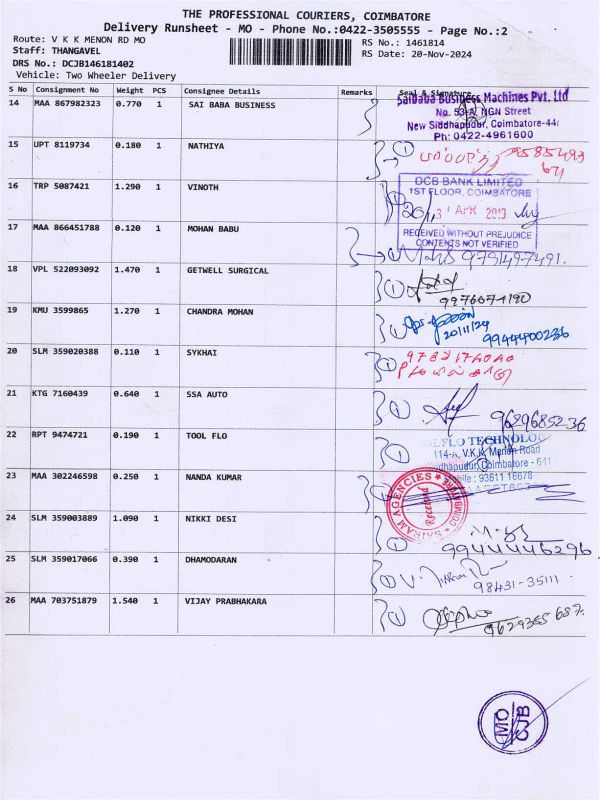 THE PROFESSIONAL COURIERS, COIMBATORE
Delivery Runsheet - MO - Phone No.:0422-3505555 - Page No.:2
Route: V K K MENON RD MO
RS No.: 1461814
Staff: THANGAVEL
RS Date: 20-Nov-2024
DRS No.: DCJB146181402
Vehicle: Two Wheeler Delivery
S No Consignment No Weight PCS Consignee Details Remarks Seal & Signature
14 MAA 867982323 0.770 1 SAI BABA BUSINESS
Saibaba Business Machines Pvt. Ltd
No. 53-A, NGN Street
New Siddhapudur, Coimbatore-44
Ph: 0422-4961600
15 UPT 8119734 0.180 1 NATHIYA
9585493
16 TRP 5087421 1.290 1 VINOTH
DCB BANK LIMITED
1ST FLOOR, COIMBATORE
RECEIVED WITHOUT PREJUDICE
CONTENTS NOT VERIFIED
17 MAA 866451788 0.120 1 MOHAN BABU
9751497491.
18 VPL 522093092 1.470 1 GETWELL SURGICAL
9976071190
19 KMU 3599865 1.270 1 CHANDRA MOHAN
20/11/24
9944400236
20 SLM 359020388 0.110 1 SYKHAI
21 KTG 7160439 0.640 1 SSA AUTO
9629685236
22 RPT 9474721 0.190 1 TOOL FLO
TECHNOLOG
114-A, V.K.K. Menon Road
Coimbatore - 641
Mobile : 93611 16678
23 MAA 302246598 0.250 1 NANDA KUMAR
SAIRAM AGENCIES
Received
24 SLM 359003889 1.090 1 NIKKI DESI
9944446296
25 SLM 359017066 0.390 1 DHAMODARAN
98431-35111.
26 MAA 703751879 1.540 1 VIJAY PRABHAKARA
MO
CJB